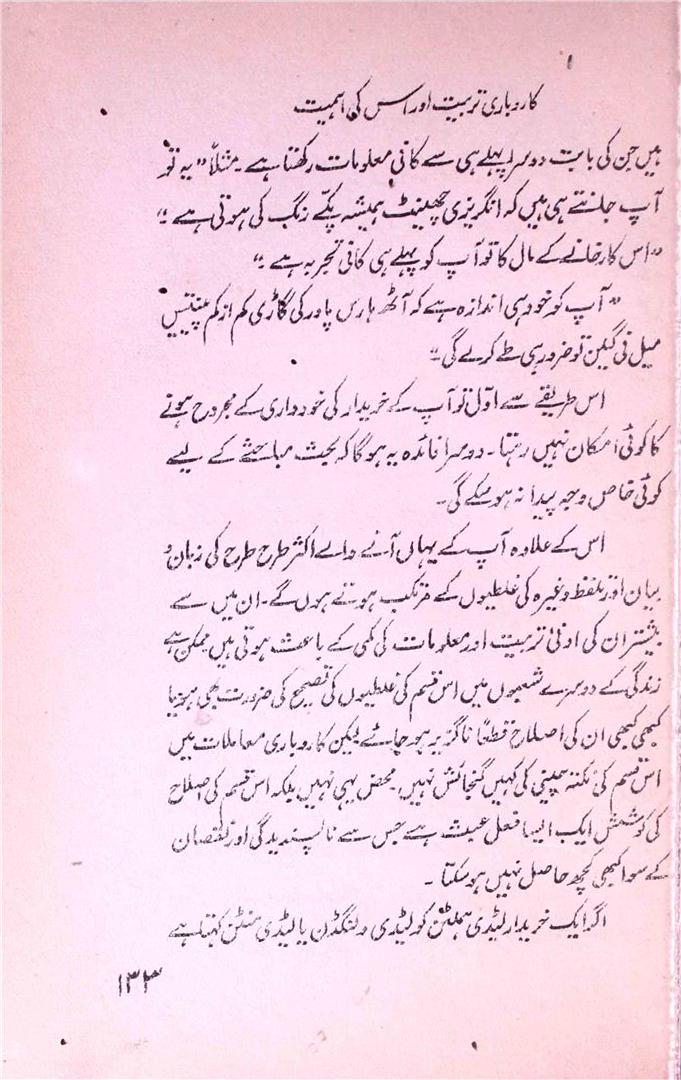 کاروباری تربیت اور اس کی اہمیت
ہیں جن کی بابت دوسرا پہلے ہی سے کافی معلومات رکھتا ہے۔ مثلاً ”یہ تو
آپ جانتے ہی ہیں کہ انگریزی چھینٹ ہمیشہ پکے رنگ کی ہوتی ہے۔“
”اس کارخانے کے مال کا تو آپ کو پہلے ہی کافی تجربہ ہے۔“
”آپ کو خود ہی اندازہ ہے کہ آٹھ ہارس پاور کی گاڑی کم از کم پینتیس
میل فی گیلن تو ضرور ہی طے کرلے گی۔“
اس طریقے سے اوّل تو آپ کے خریدار کی خودداری کے مجروح ہونے
کا کوئی امکان نہیں رہتا۔ دوسرا فائدہ یہ ہوگا کہ بحث مباحثے کے لیے
کوئی خاص وجہ پیدا نہ ہوسکے گی۔
اس کے علاوہ آپ کے یہاں آنے والے اکثر طرح طرح کی زبان و
بیان اور تلفظ وغیرہ کی غلطیوں کے مرتکب ہوتے ہوں گے۔ ان میں سے
بیشتر ان کی ادنیٰ تربیت اور معلومات کی کمی کے باعث ہوتی ہیں ممکن ہے
زندگی کے دوسرے شعبوں میں اس قسم کی غلطیوں کی تصحیح کی ضرورت بھی ہو یا
کبھی کبھی ان کی اصلاح قطعاً ناگزیر ہو جائے لیکن کاروباری معاملات میں
اس قسم کی نکتہ چینی کی کہیں گنجائش نہیں، محض یہی نہیں بلکہ اس قسم کی اصلاح
کی کوشش ایک ایسا فعل عبث ہے جس سے ناپسندیدگی اور نقصان
کے سوا کبھی کچھ حاصل نہیں ہوسکتا۔
اگر ایک خریدار لیڈی ہملٹن کو لیڈی ولنگڈن یا لیڈی منٹن کہتا ہے
۱۳۳